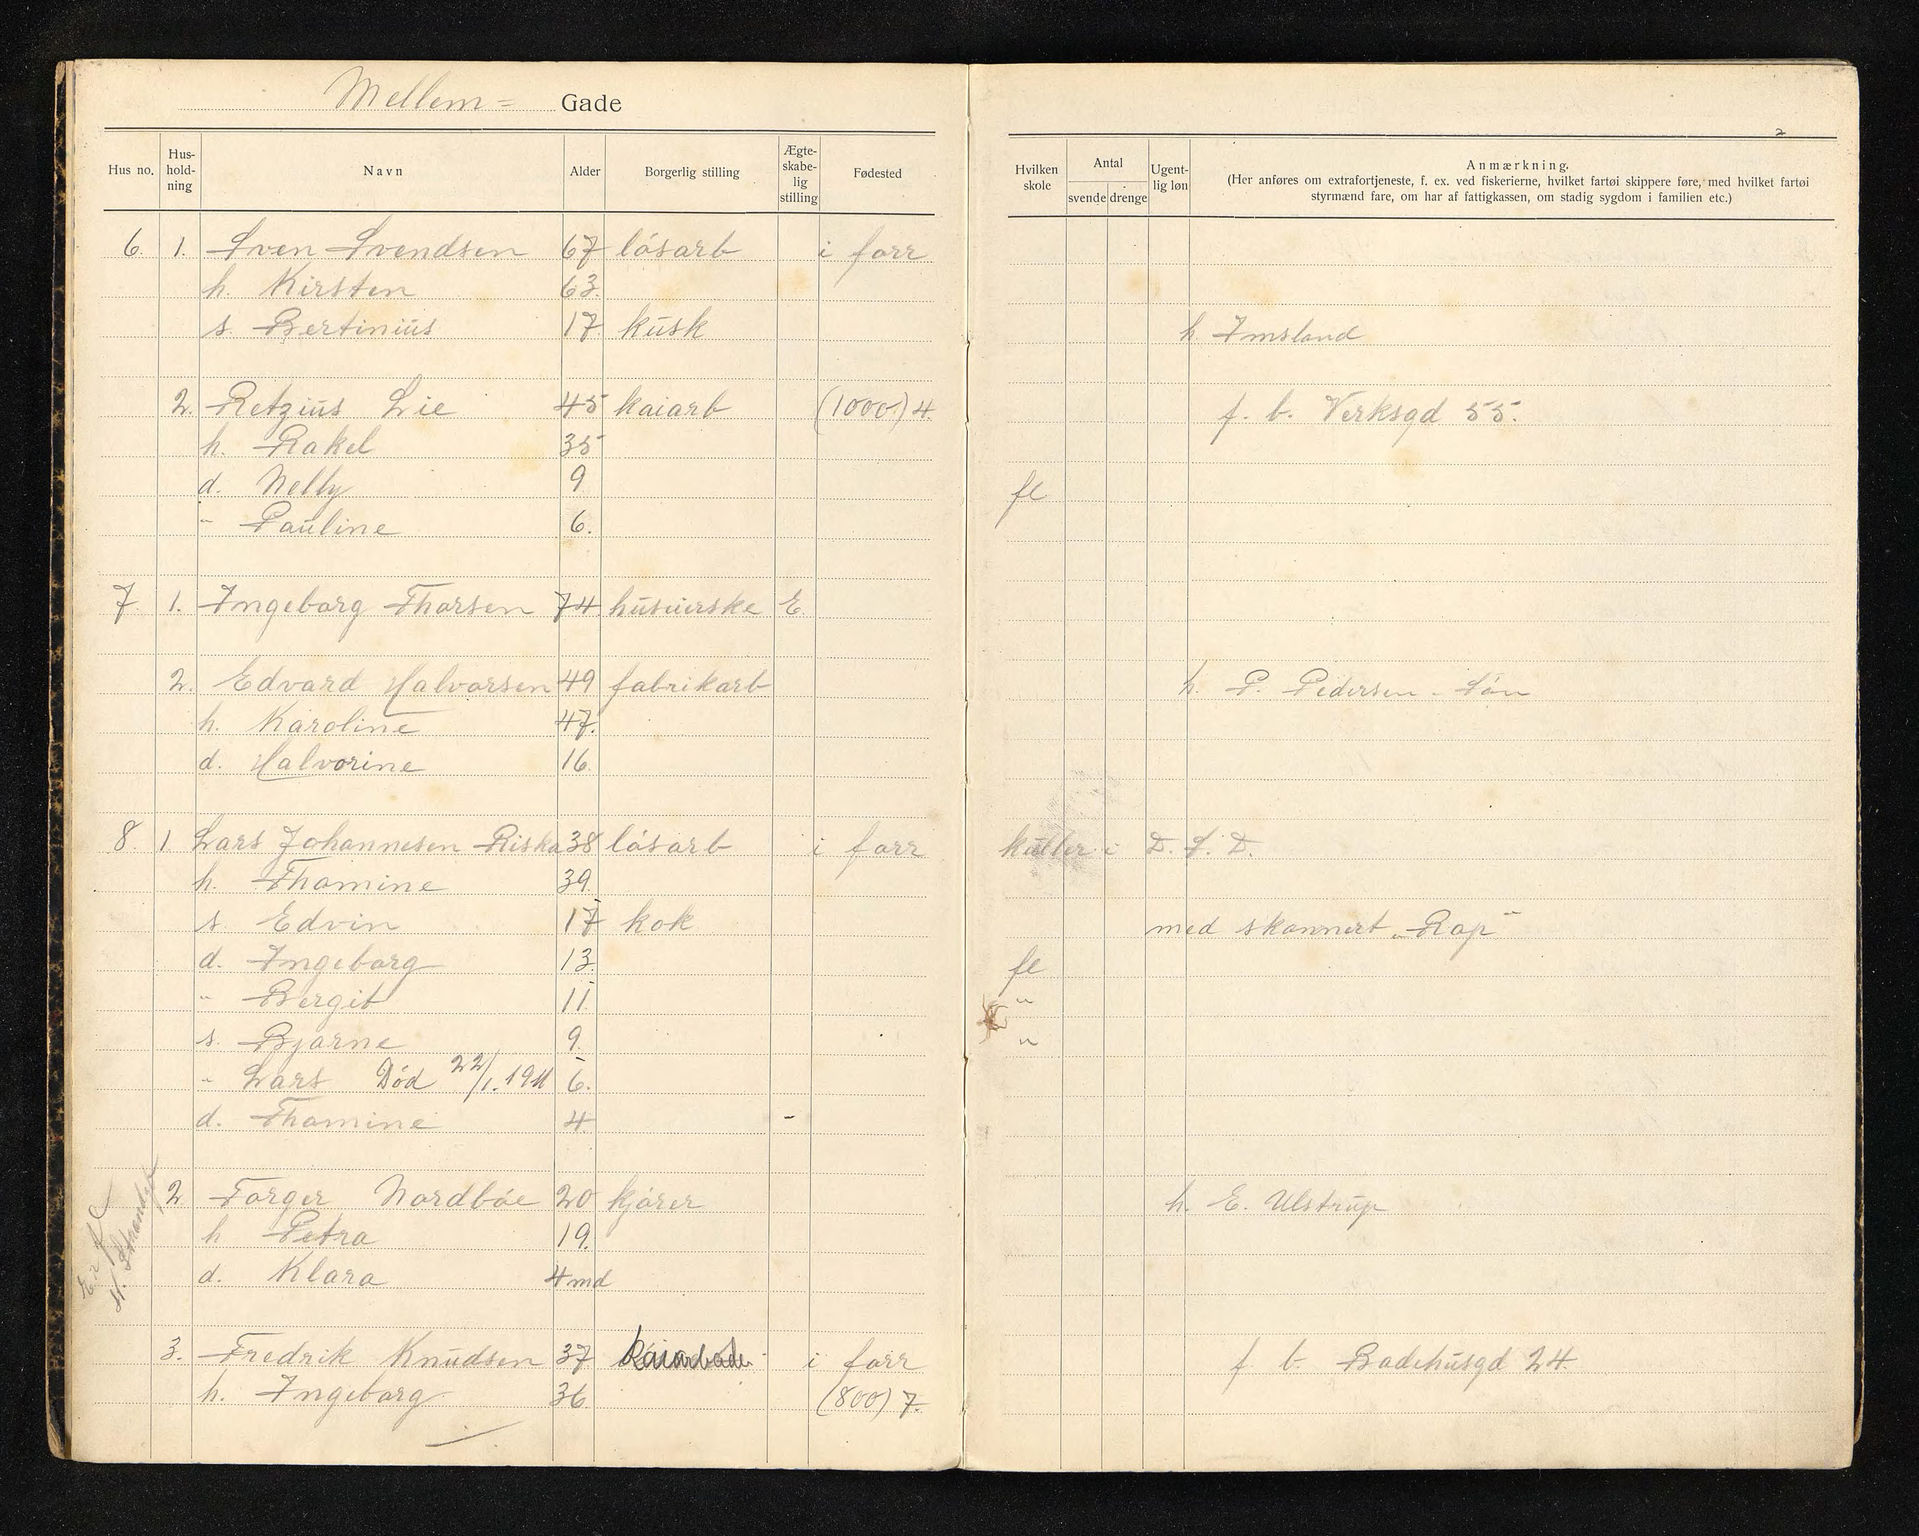 Mellem= Gade
2
Hus no. Hus-hold-ning Navn Alder Borgerlig stilling Ægte-skabe-lig stilling Fødested Hvilken skole Antal svende drenge Ugent-lig løn Anmærkning.
(Her anføres om extrafortjeneste, f. ex. ved fiskerierne, hvilket fartøi skippere føre, med hvilket fartøi
styrmænd fare, om har af fattigkassen, om stadig sygdom i familien etc.)
6. 1. Sven Svendsen 67 løsarb i forr
h. Kirsten 63.
s. Bertinius 17. kusk h Imsland
2. Retzius Lie 45 kaiarb (1000) 4. f. b. Verksgd 55.
h. Rakel 35
d. Nelly 9 fl
" Pauline 6.
7 1. Ingeborg Thorsen 74 husvirske E.
2. Edvard Halvorsen 49 fabrikarb h. P. Pedersen - Søn
h. Karoline 47.
d. Halvorine 16.
8. 1 Lars Johannesen Riska 38 løsarb i forr kuller i D. S. D.
h. Thomine 39.
s. Edvin 17 kok med skonnert "Rap"
d. Ingeborg 13. fl
" Bergit 11. "
s. Bjarne 9. "
" Lars Død 22/1. 1911 6.
d. Thomine 4 -
2 Torger Nordbøe 20 kjører h. E. Ulstrup
h Petra 19.
d. Klara 4 md
St. Strandgt
3. Fredrik Knudsen 37 kaiarbeide i forr f b. Badehusgd 24.
h. Ingeborg 36 (800) 7.